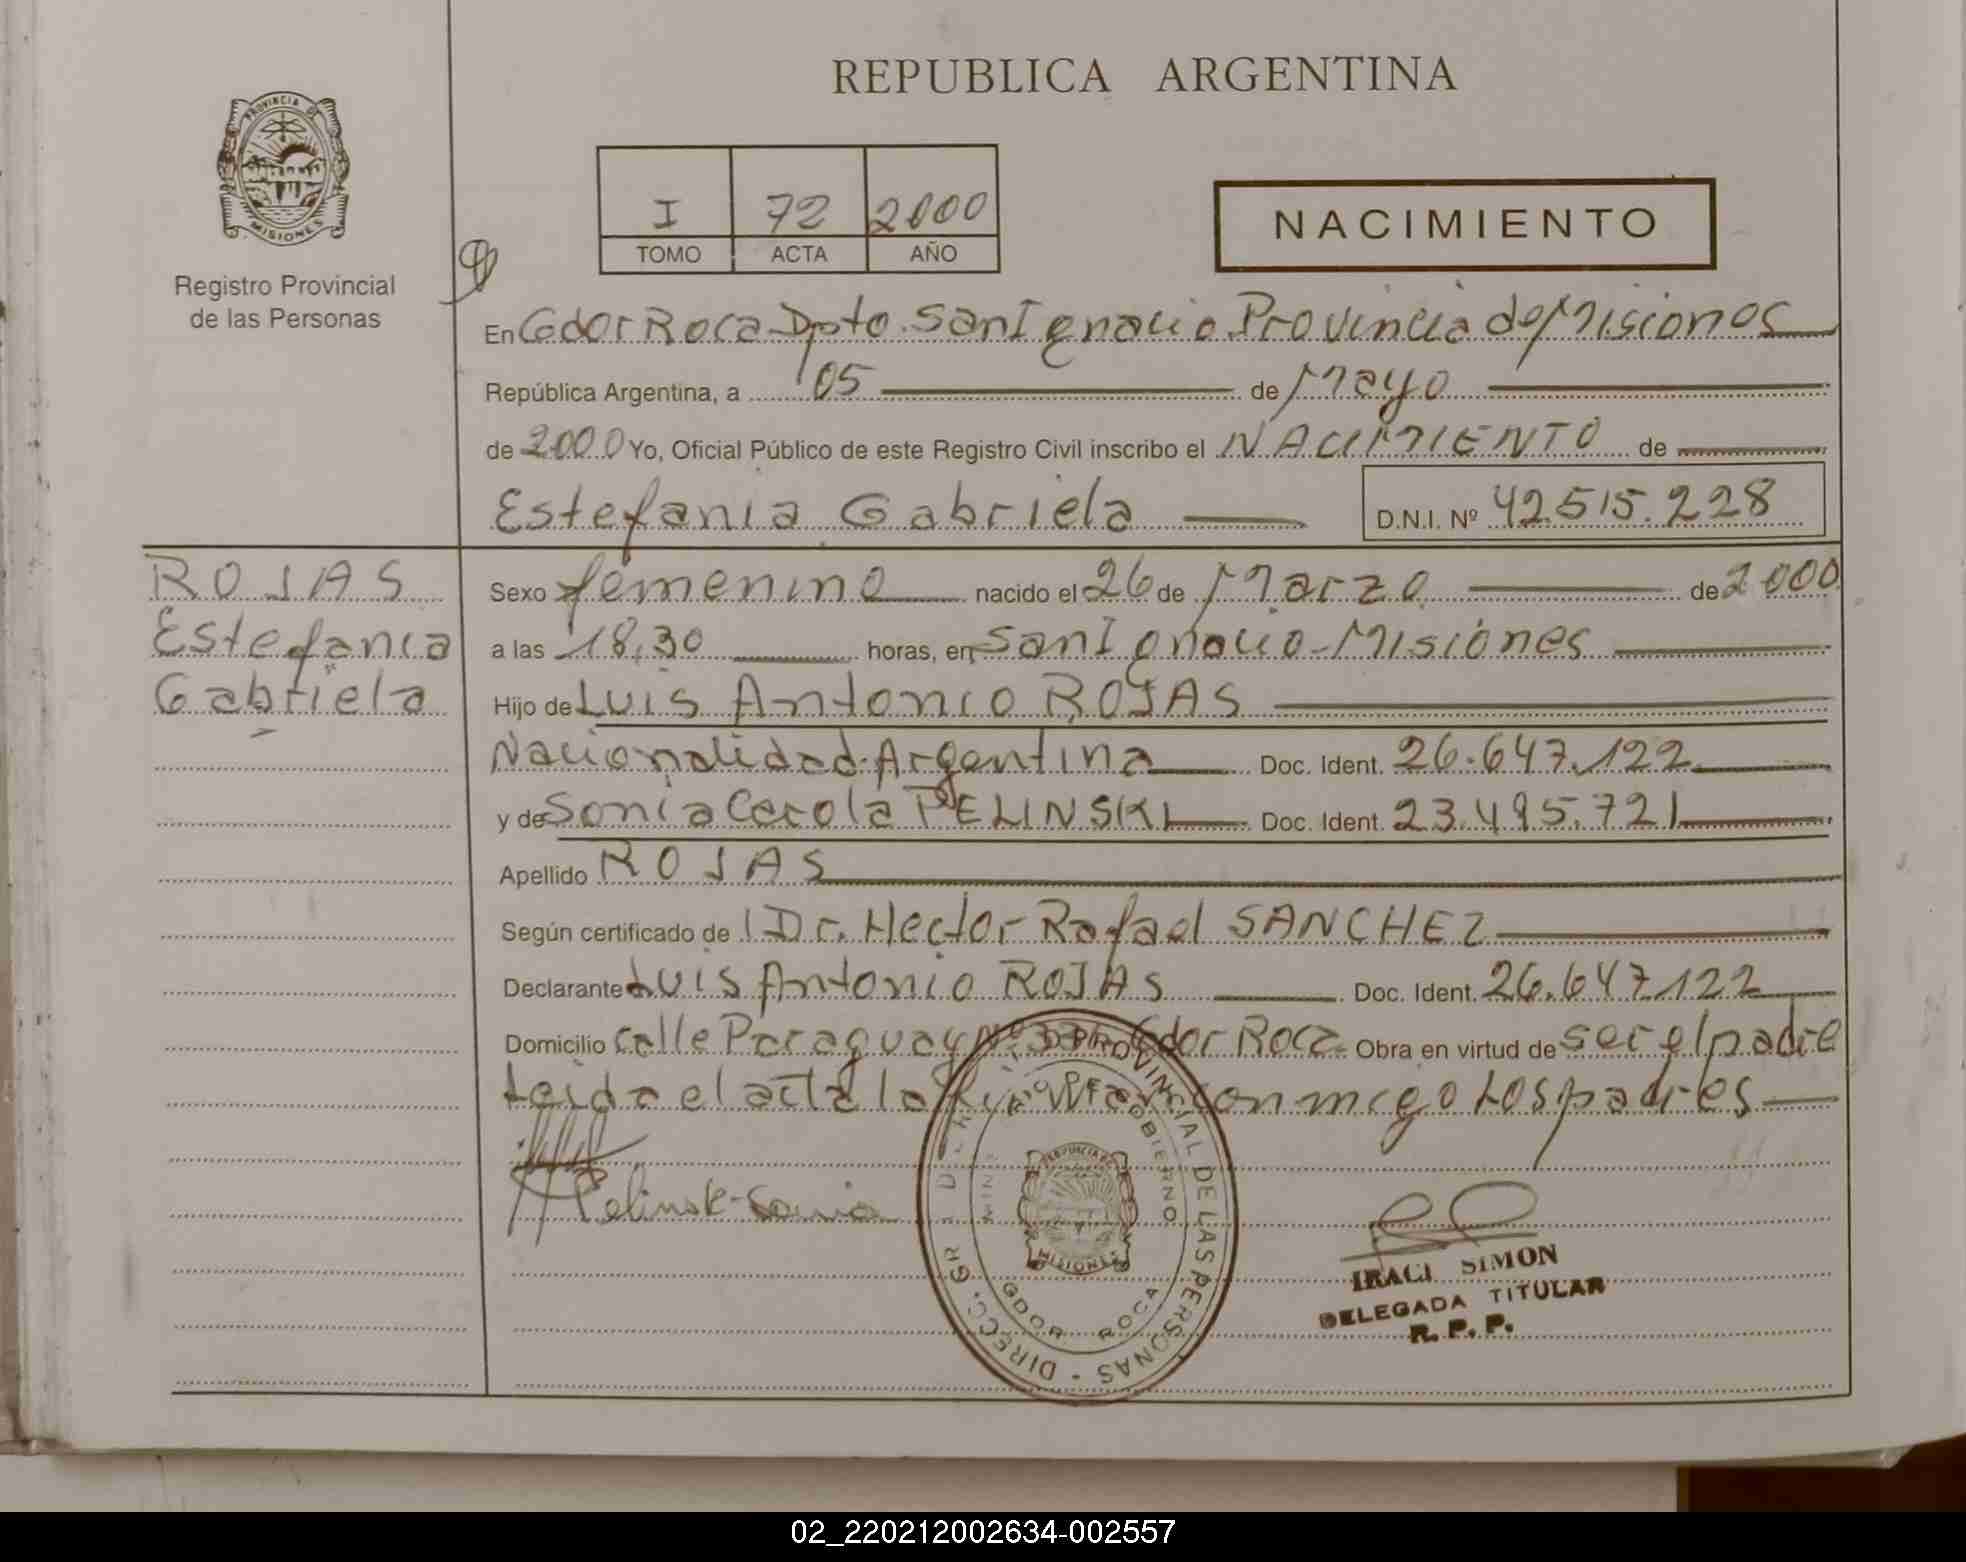 REPUBLICA ARGENTINA
PROVINCIA DE
MISIONES
Registro Provincial
de las Personas
I 72 2000
TOMO ACTA AÑO
NACIMIENTO
En Gdor Roca Dpto. San Ignacio Provincia de Misiones
República Argentina, a 05 de Mayo
de 2000 Yo, Oficial Público de este Registro Civil inscribo el NACIMIENTO de
Estefania Gabriela D.N.I. Nº 42.515.228
ROJAS
Estefania
Gabriela
Sexo femenino nacido el 26 de Marzo de 2000
a las 18,30 horas, en San Ignacio-Misiones
Hijo de Luis Antonio ROJAS
Nacionalidad Argentina Doc. Ident. 26.647.122
y de Sonia Carola PELINSKI Doc. Ident. 23.495.721
Apellido ROJAS
Según certificado de Dr. Hector Rafael SANCHEZ
Declarante Luis Antonio ROJAS Doc. Ident. 26.647.122
Domicilio calle Paraguay Gdor Roca Obra en virtud de ser el padre
Leida el acta la firman conmigo Los padres
Pelinsk-Sonia
PROVINCIAL DE LAS PERSONAS - DIRECC. GR
GOBIERNO
MISIONES
GDOR ROCA
IRACI SIMON
DELEGADA TITULAR
R. P. P.
02_220212002634-002557